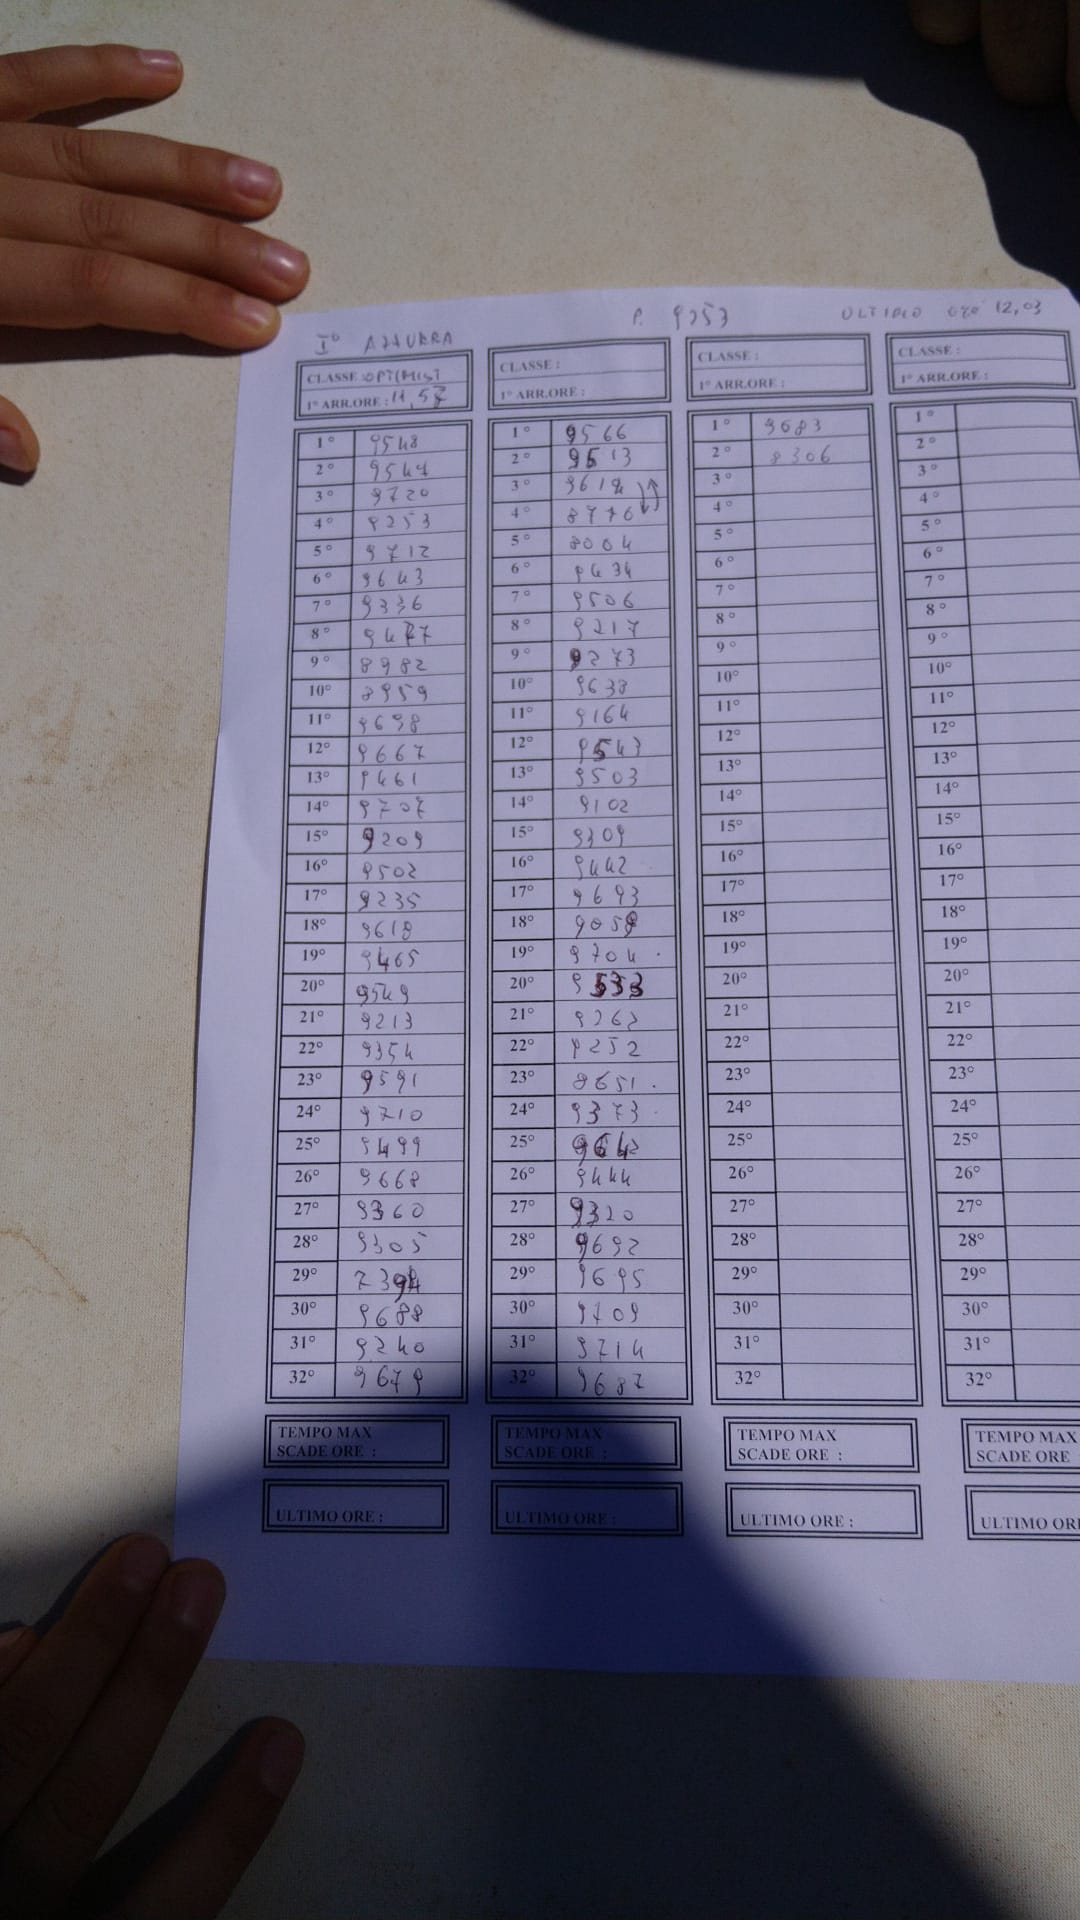 I° AZZURRA P. 9253 ULTIMO ORE 12,03
CLASSE :OPTIMIST
1° ARR.ORE : 11,57
1° 9548
2° 9547
3° 9720
4° 9253
5° 9712
6° 9643
7° 9336
8° 9477
9° 8982
10° 8959
11° 9698
12° 9667
13° 9461
14° 9707
15° 9209
16° 9502
17° 9235
18° 9618
19° 9465
20° 9549
21° 9213
22° 9354
23° 9591
24° 9710
25° 9499
26° 9668
27° 9360
28° 9305
29°
30° 9688
31° 9240
32° 9679
TEMPO MAX
SCADE ORE :
ULTIMO ORE :
CLASSE :
1° ARR.ORE :
1° 9566
2° 9613
3°
4° 8770
5° 8004
6° 9434
7° 9506
8° 9217
9° 9273
10° 9638
11° 9164
12° 9543
13° 9503
14° 9102
15° 9309
16° 9442
17° 9693
18° 9058
19° 9704
20° 9533
21° 9262
22° 9252
23° 8651
24° 9373
25° 9642
26° 9444
27° 9320
28° 9692
29° 9695
30° 9709
31° 9714
32° 9687
TEMPO MAX
SCADE ORE :
ULTIMO ORE :
CLASSE :
1° ARR.ORE :
1° 9683
2° 8306
3°
4°
5°
6°
7°
8°
9°
10°
11°
12°
13°
14°
15°
16°
17°
18°
19°
20°
21°
22°
23°
24°
25°
26°
27°
28°
29°
30°
31°
32°
TEMPO MAX
SCADE ORE :
ULTIMO ORE :
CLASSE :
1° ARR.ORE :
1°
2°
3°
4°
5°
6°
7°
8°
9°
10°
11°
12°
13°
14°
15°
16°
17°
18°
19°
20°
21°
22°
23°
24°
25°
26°
27°
28°
29°
30°
31°
32°
TEMPO MAX
SCADE ORE
ULTIMO ORE